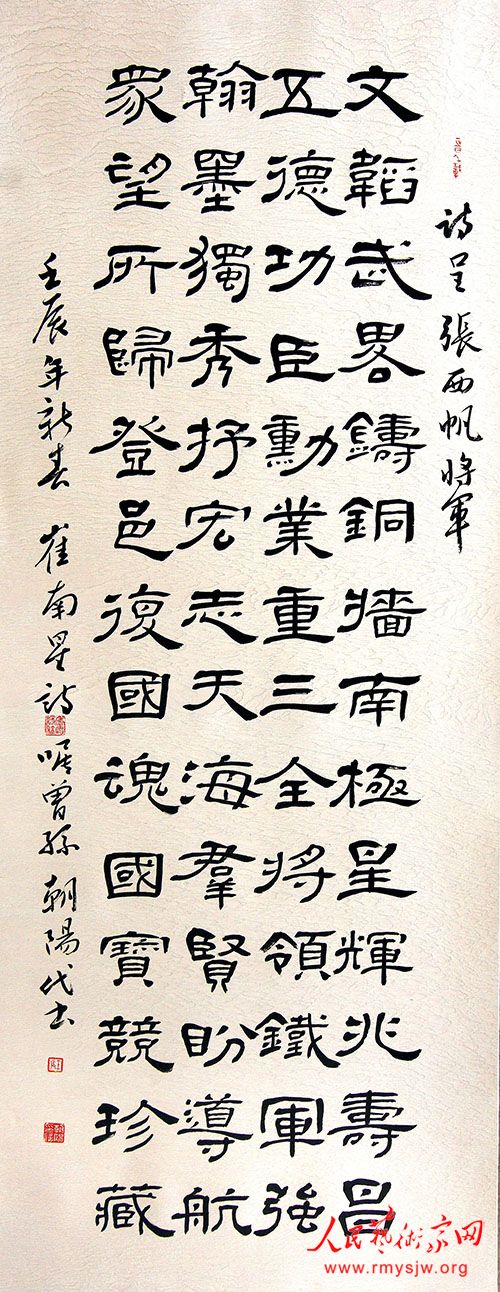 詩呈張西帆將軍
文韜武畧鑄銅墻南極星輝兆壽昌
五德功臣勳業重三全將領鐵軍強
翰墨獨秀抒宏志天海羣賢盼導航
眾望所歸登邑復國魂國寶競珍藏
壬辰年新春 崔南星詩 囑曾孫朝陽代书
人民艺術家网
www.rmysjw.org